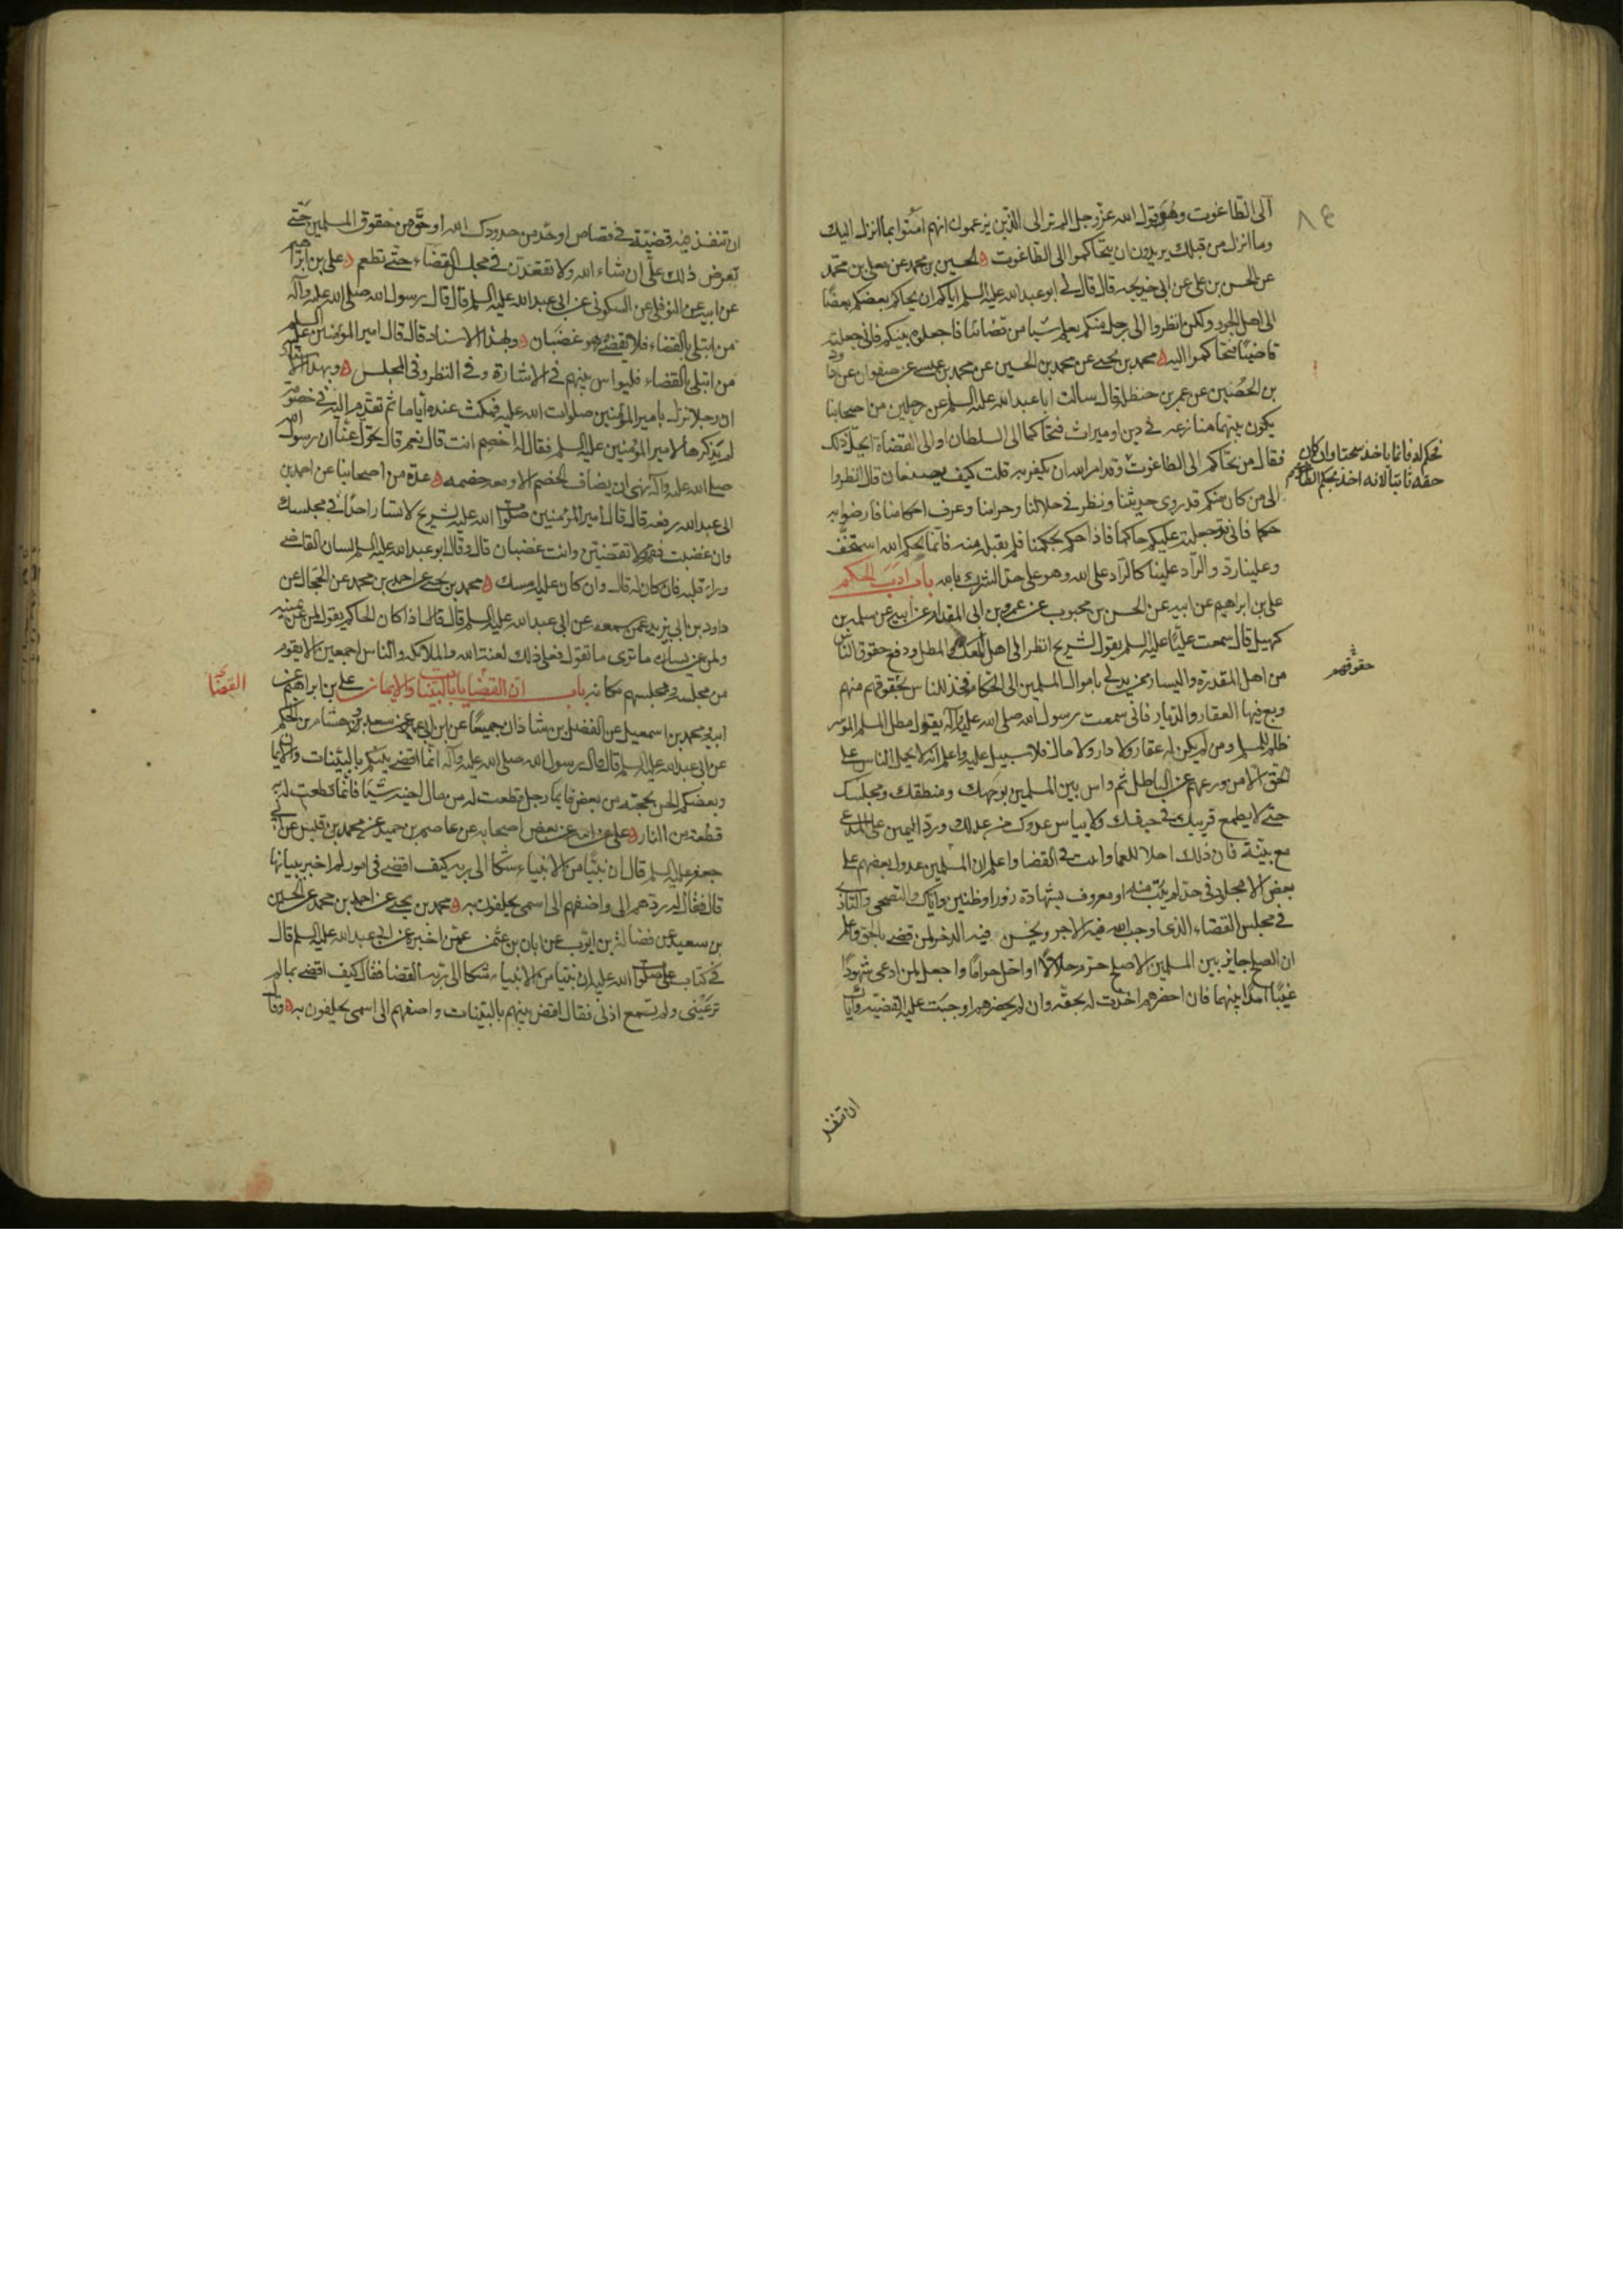 الى الطاغوت وهو قول الله عزوجل الم تر الى الذين يزعمون انهم امنوا بما انزل اليك
وما انزل من قبلك يريدون ان يتحاكموا الى الطاغوت الحسين بن محمد عن معلى بن محمد
عن الحسن بن على عن ابى خديجه قال قال لى ابو عبد الله عليه السلم اياكم ان يحاكم بعضكم بعضا
الى اهل الجور ولكن انظروا الى رجل منكم يعلم شيا من قضائنا فاجعلوه بينكم فانى جعلته
قاضيا فتحاكموا اليه محمد بن يحيى عن محمد بن الحسين عن محمد بن عيسى عن صفوان عن داود
بن الحصين عن عمر بن حنظلة قال سالت ابا عبد الله عليه السلم عن رجلين من اصحابنا
يكون بينهما منازعه فى دين او ميراث فتحاكما الى السلطان او الى القضاة ايحل ذلك
فقال من تحاكم الى الطاغوت وقد امر الله ان يكفر به قلت كيف يصنعان قال انظروا
فحكم له فانما ياخذ سحتا وان كان
حقه ثابتا لانه اخذ بحكم الطاغوت
الى من كان منكم قد روى حديثنا ونظر فى حلالنا وحرامنا وعرف احكامنا فارضوا به
حكما فانى قد جعلته عليكم حاكما فاذا حكم بحكمنا فلم يقبل منه فانما بحكم الله استخف
وعلينا رد والراد علينا كالراد على الله وهو على حد الشرك بالله باب ادب الحكم
على بن ابراهيم عن ابيه عن الحسن بن محبوب عن عمرو بن ابى المقدام عن ابيه عن سلمه بن
كهيل قال سمعت عليا عليه السلم يقول لشريح انظر الى اهل المعك والمطل ودفع حقوق الناس
حقوقهم
من اهل المقدرة واليسار ممن يدلى باموال المسلمين الى الحكام فخذ للناس بحقوقهم منهم
وبع فيها العقار والديار فانى سمعت رسول الله صلى الله عليه وآله يقول مطل المسلم الموسر
ظلم للمسلم ومن لم يكن له عقار ولا دار ولا مال فلا سبيل عليه واعلم انه لا يحمل الناس على
الحق الا من ورعهم عن الباطل ثم واس بين المسلمين بوجهك ومنطقك ومجلسك
حتى لا يطمع قريبك فى حيفك ولا يياس عدوك من عدلك ورد اليمين على المدعى
مع بينة فان ذلك اجلا للعما واثبت فى القضا واعلم ان المسلمين عدول بعضهم على
بعض الا مجلود فى حد لم يتب منه او معروف بشهادة زور او ظنين واياك والتضجر والتاذى
فى مجلس القضاء الذى اوجب الله فيه الاجر ويحسن فيه الذخر لمن قضى بالحق واعلم
ان الصلح جايز بين المسلمين الا صلح حرم حلالا او احل حراما واجعل لمن ادعى شهودا
غيبا امدا بينهما فان احضرهم اخذت له بحقه وان لم يحضرهم اوجبت عليه القضية واياك
ان تنفذ
ان تنفذ فيه قضية فى قصاص او حد من حدود الله او حق من حقوق المسلمين حتى
تعرض ذلك على ان شاء الله ولا تقعدن فى مجلس القضاء حتى تطعم على بن ابراهيم
عن ابيه عن النوفلى عن السكونى عن ابى عبد الله عليه السلم قال قال رسول الله صلى الله عليه وآله
من ابتلى بالقضاء فلا يقضى وهو غضبان وبهذا الاسناد قال قال امير المؤمنين عليه السلم
من ابتلى بالقضاء فليواس بينهم فى الاشارة وفى النظر وفى المجلس وبهذا الاسناد
ان رجلا نزل بامير المؤمنين صلوات الله عليه فمكث عنده اياما ثم تقدم اليه فى خصومة
لم يذكرها لامير المؤمنين عليه السلم فقال له اخصم انت قال نعم قال تحول عنا ان رسول الله
صلى الله عليه وآله نهى ان يضاف الخصم الا ومعه خصمه عدة من اصحابنا عن احمد بن
ابى عبد الله رفعه قال قال امير المؤمنين صلوات الله عليه لشريح لا تسار احدا فى مجلسك
وان غضبت فقم ولا تقضين وانت غضبان قال وقال ابو عبد الله عليه السلم لسان القاضى
وراء قلبه فان كان له قال وان كان عليه امسك محمد بن يحيى عن احمد بن محمد عن الحجال عن
داود بن ابى يزيد عمن سمعه عن ابى عبد الله عليه السلم قال قال اذا كان الحاكم يقول لمن عن يمينه
ولمن عن يساره ما ترى ما تقول فعلى ذلك لعنة الله والملائكه والناس اجمعين الا يقوم
من مجلسه ومجلسهم مكانه باب ان القضايا بالبينات والايمان على بن ابراهيم عن
القضا
ابيه ومحمد بن اسمعيل عن الفضل بن شاذان جميعا عن ابن ابى عمير عن سعد وهشام بن الحكم
عن ابى عبد الله عليه السلم قال قال رسول الله صلى الله عليه وآله انما اقضى بينكم بالبينات والايمان
وبعضكم الحن بحجته من بعض فايما رجل قطعت له من مال اخيه شيئا فانما قطعت له به
قطعة من النار على عن ابيه عن بعض اصحابه عن عاصم بن حميد عن محمد بن قيس عن ابى
جعفر عليه السلم قال ان نبيا من الانبياء شكا الى ربه كيف اقضى فى امور لم اخبر ببيانها
قال فقال له ردهم الى واضفهم الى اسمى يحلفون به محمد بن يحيى عن احمد بن محمد عن الحسين
بن سعيد عن فضالة بن ايوب عن ابان بن عثمن عمن اخبره عن ابى عبد الله عليه السلم قال
فى كتاب على صلوات الله عليه ان نبيا من الانبياء شكا الى ربه القضا فقال كيف اقضى بما لم
تر عينى ولم تسمع اذنى فقال اقض بينهم بالبينات واضفهم الى اسمى يحلفون به وقال